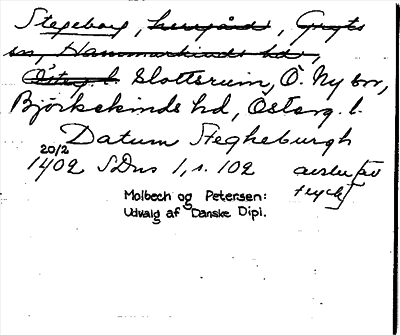 Stegeborg, herrgård, Gryts
sn, Hammarkinds hd,
Österg. l. Slottsruin, Ö. Ny sn,
Björkekinds hd, Österg. l.
Datum Stegheburgh
20/2
1402 SDns 1, s. 102 avskr. [av
tryck]
Molbech og Petersen:
Udvalg af Danske Dipl.